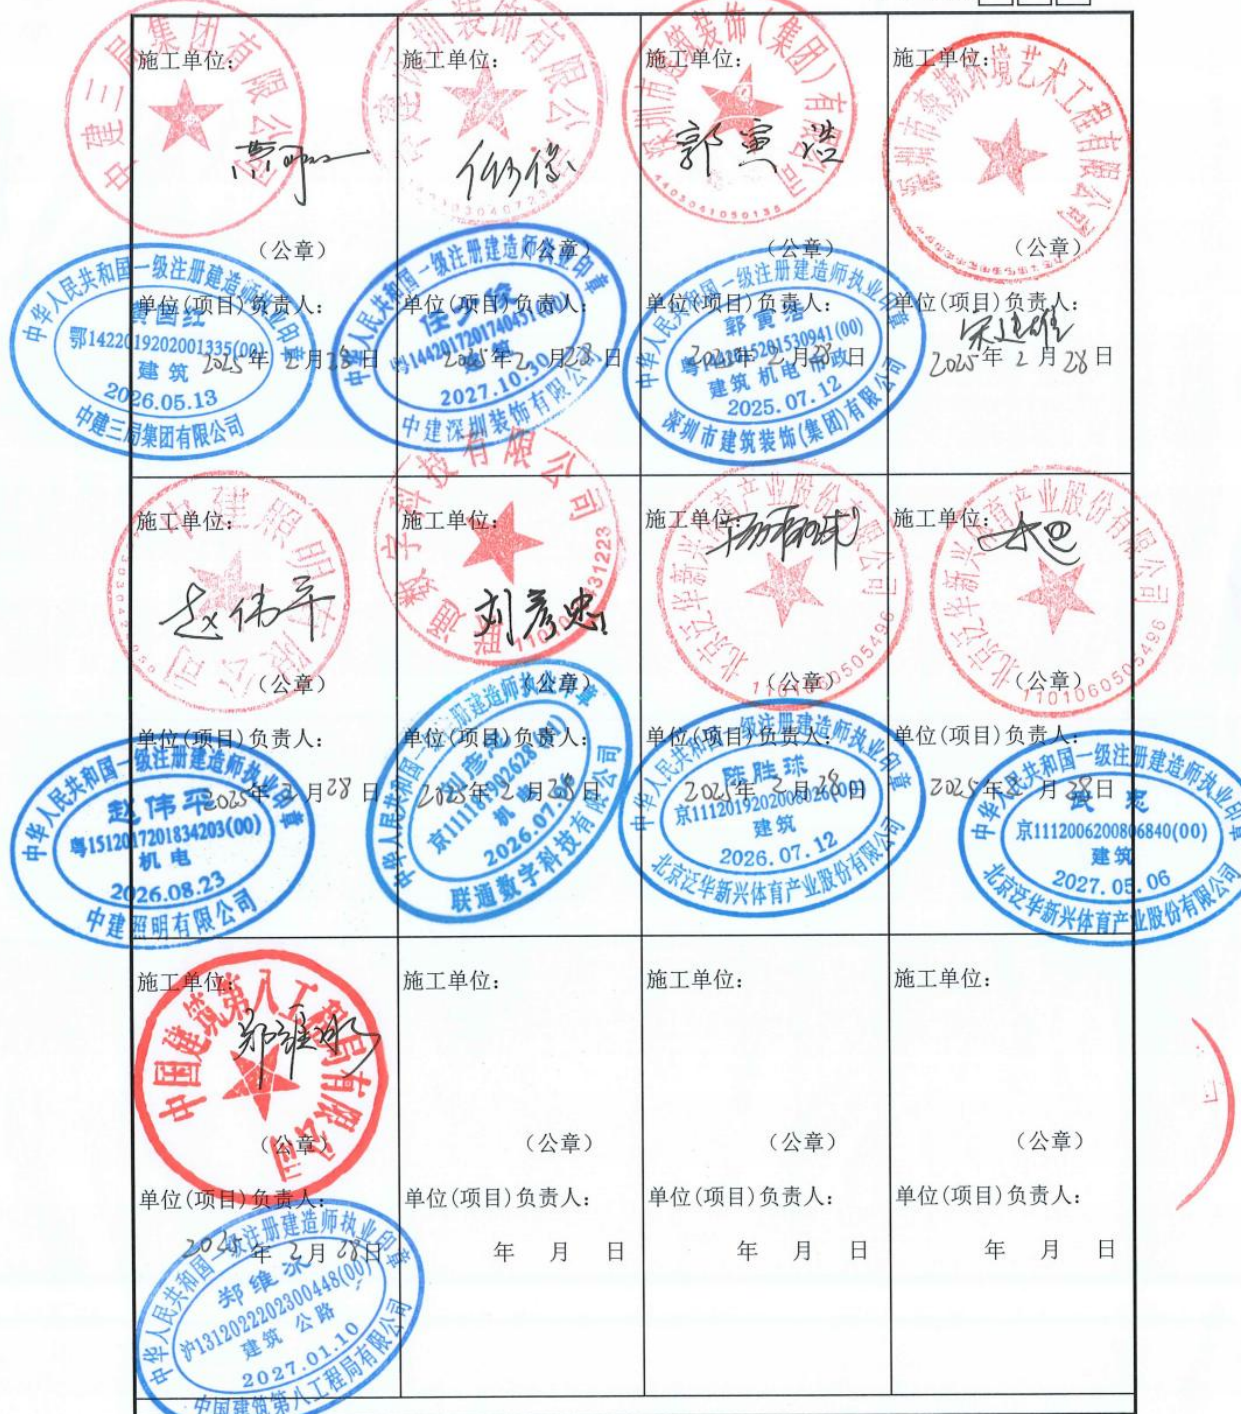 施工单位:
中建三局集团有限公司
(公章)
单位(项目)负责人:
2025年2月28日
中华人民共和国一级注册建造师执业印章
黄国红
鄂1422019202001335(00)
建筑
2026.05.13
中建三局集团有限公司
施工单位:
中建深圳装饰有限公司
(公章)
单位(项目)负责人:
2025年2月28日
中华人民共和国一级注册建造师执业印章
粤1442017201740451(00)
建筑
2027.10.30
中建深圳装饰有限公司
施工单位:
深圳市建筑装饰(集团)有限公司
郭寅浩
(公章)
单位(项目)负责人:
2025年2月28日
中华人民共和国一级注册建造师执业印章
郭寅浩
建筑 机电 市政
2025.07.12
深圳市建筑装饰(集团)有限公司
施工单位:
深圳市森脉环境艺术工程有限公司
(公章)
单位(项目)负责人:
宋建雄
2025年2月28日
施工单位:
中建照明有限公司
赵伟平
(公章)
单位(项目)负责人:
2025年2月28日
中华人民共和国一级注册建造师执业印章
赵伟平
粤1512017201834203(00)
机电
2026.08.23
中建照明有限公司
施工单位:
联通数字科技有限公司
刘彦忠
(公章)
单位(项目)负责人:
2025年2月28日
中华人民共和国一级注册建造师执业印章
刘彦忠
机电
联通数字科技有限公司
施工单位:
北京泛华新兴体育产业股份有限公司
1101060505496
(公章)
单位(项目)负责人:
2025年2月28日
中华人民共和国一级注册建造师执业印章
陈胜球
京1112019202006026(00)
建筑
2026.07.12
北京泛华新兴体育产业股份有限公司
施工单位:
北京泛华新兴体育产业股份有限公司
1101060505496
(公章)
单位(项目)负责人:
2025年2月28日
中华人民共和国一级注册建造师执业印章
京1112006200806840(00)
建筑
2027.05.06
北京泛华新兴体育产业股份有限公司
施工单位:
中国建筑第八工程局有限公司
郑维冰
(公章)
单位(项目)负责人:
2025年2月28日
中华人民共和国一级注册建造师执业印章
郑维冰
沪1312022202300448(00)
建筑 公路
2027.01.10
中国建筑第八工程局有限公司
施工单位:
(公章)
单位(项目)负责人:
年 月 日
施工单位:
(公章)
单位(项目)负责人:
年 月 日
施工单位:
(公章)
单位(项目)负责人:
年 月 日